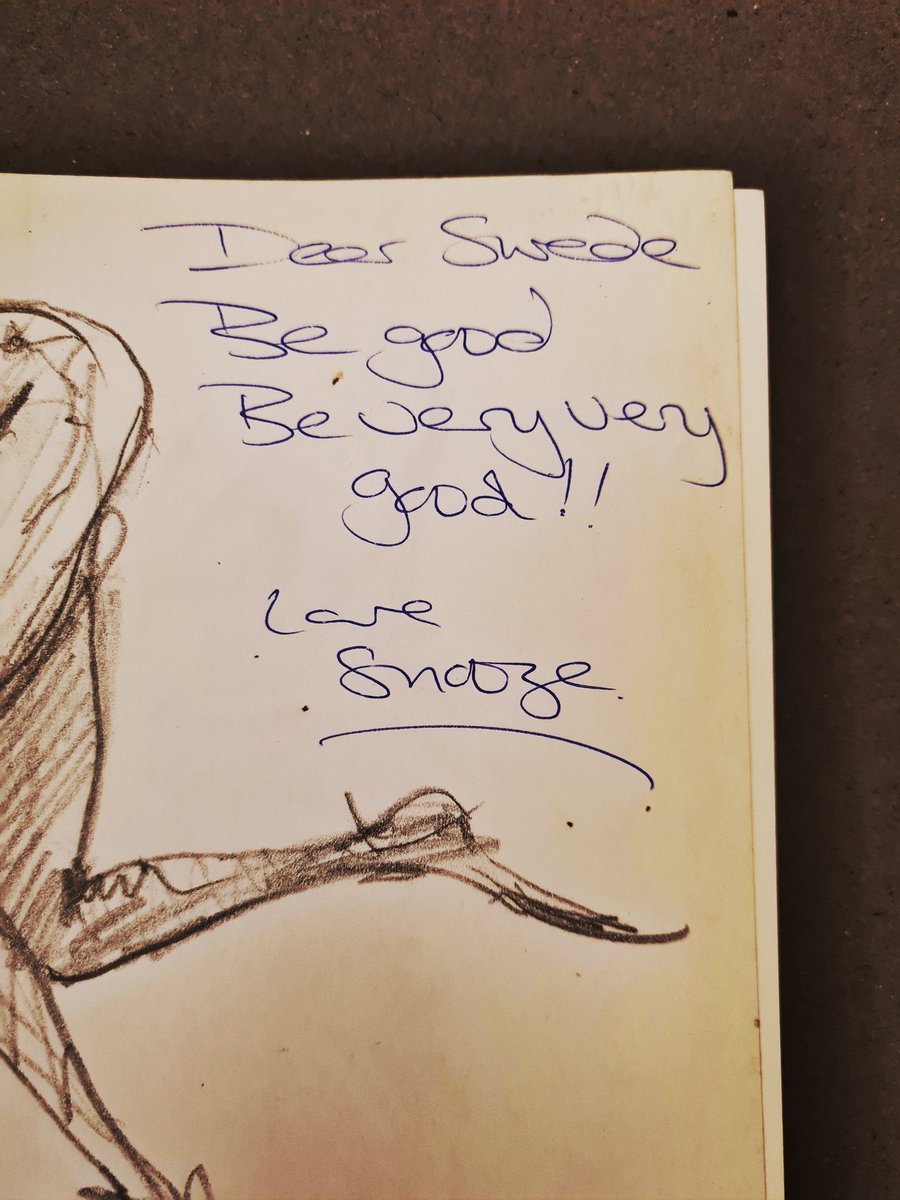 Dear Swede
Be good
Be very very
good!!
Love
Snooze.